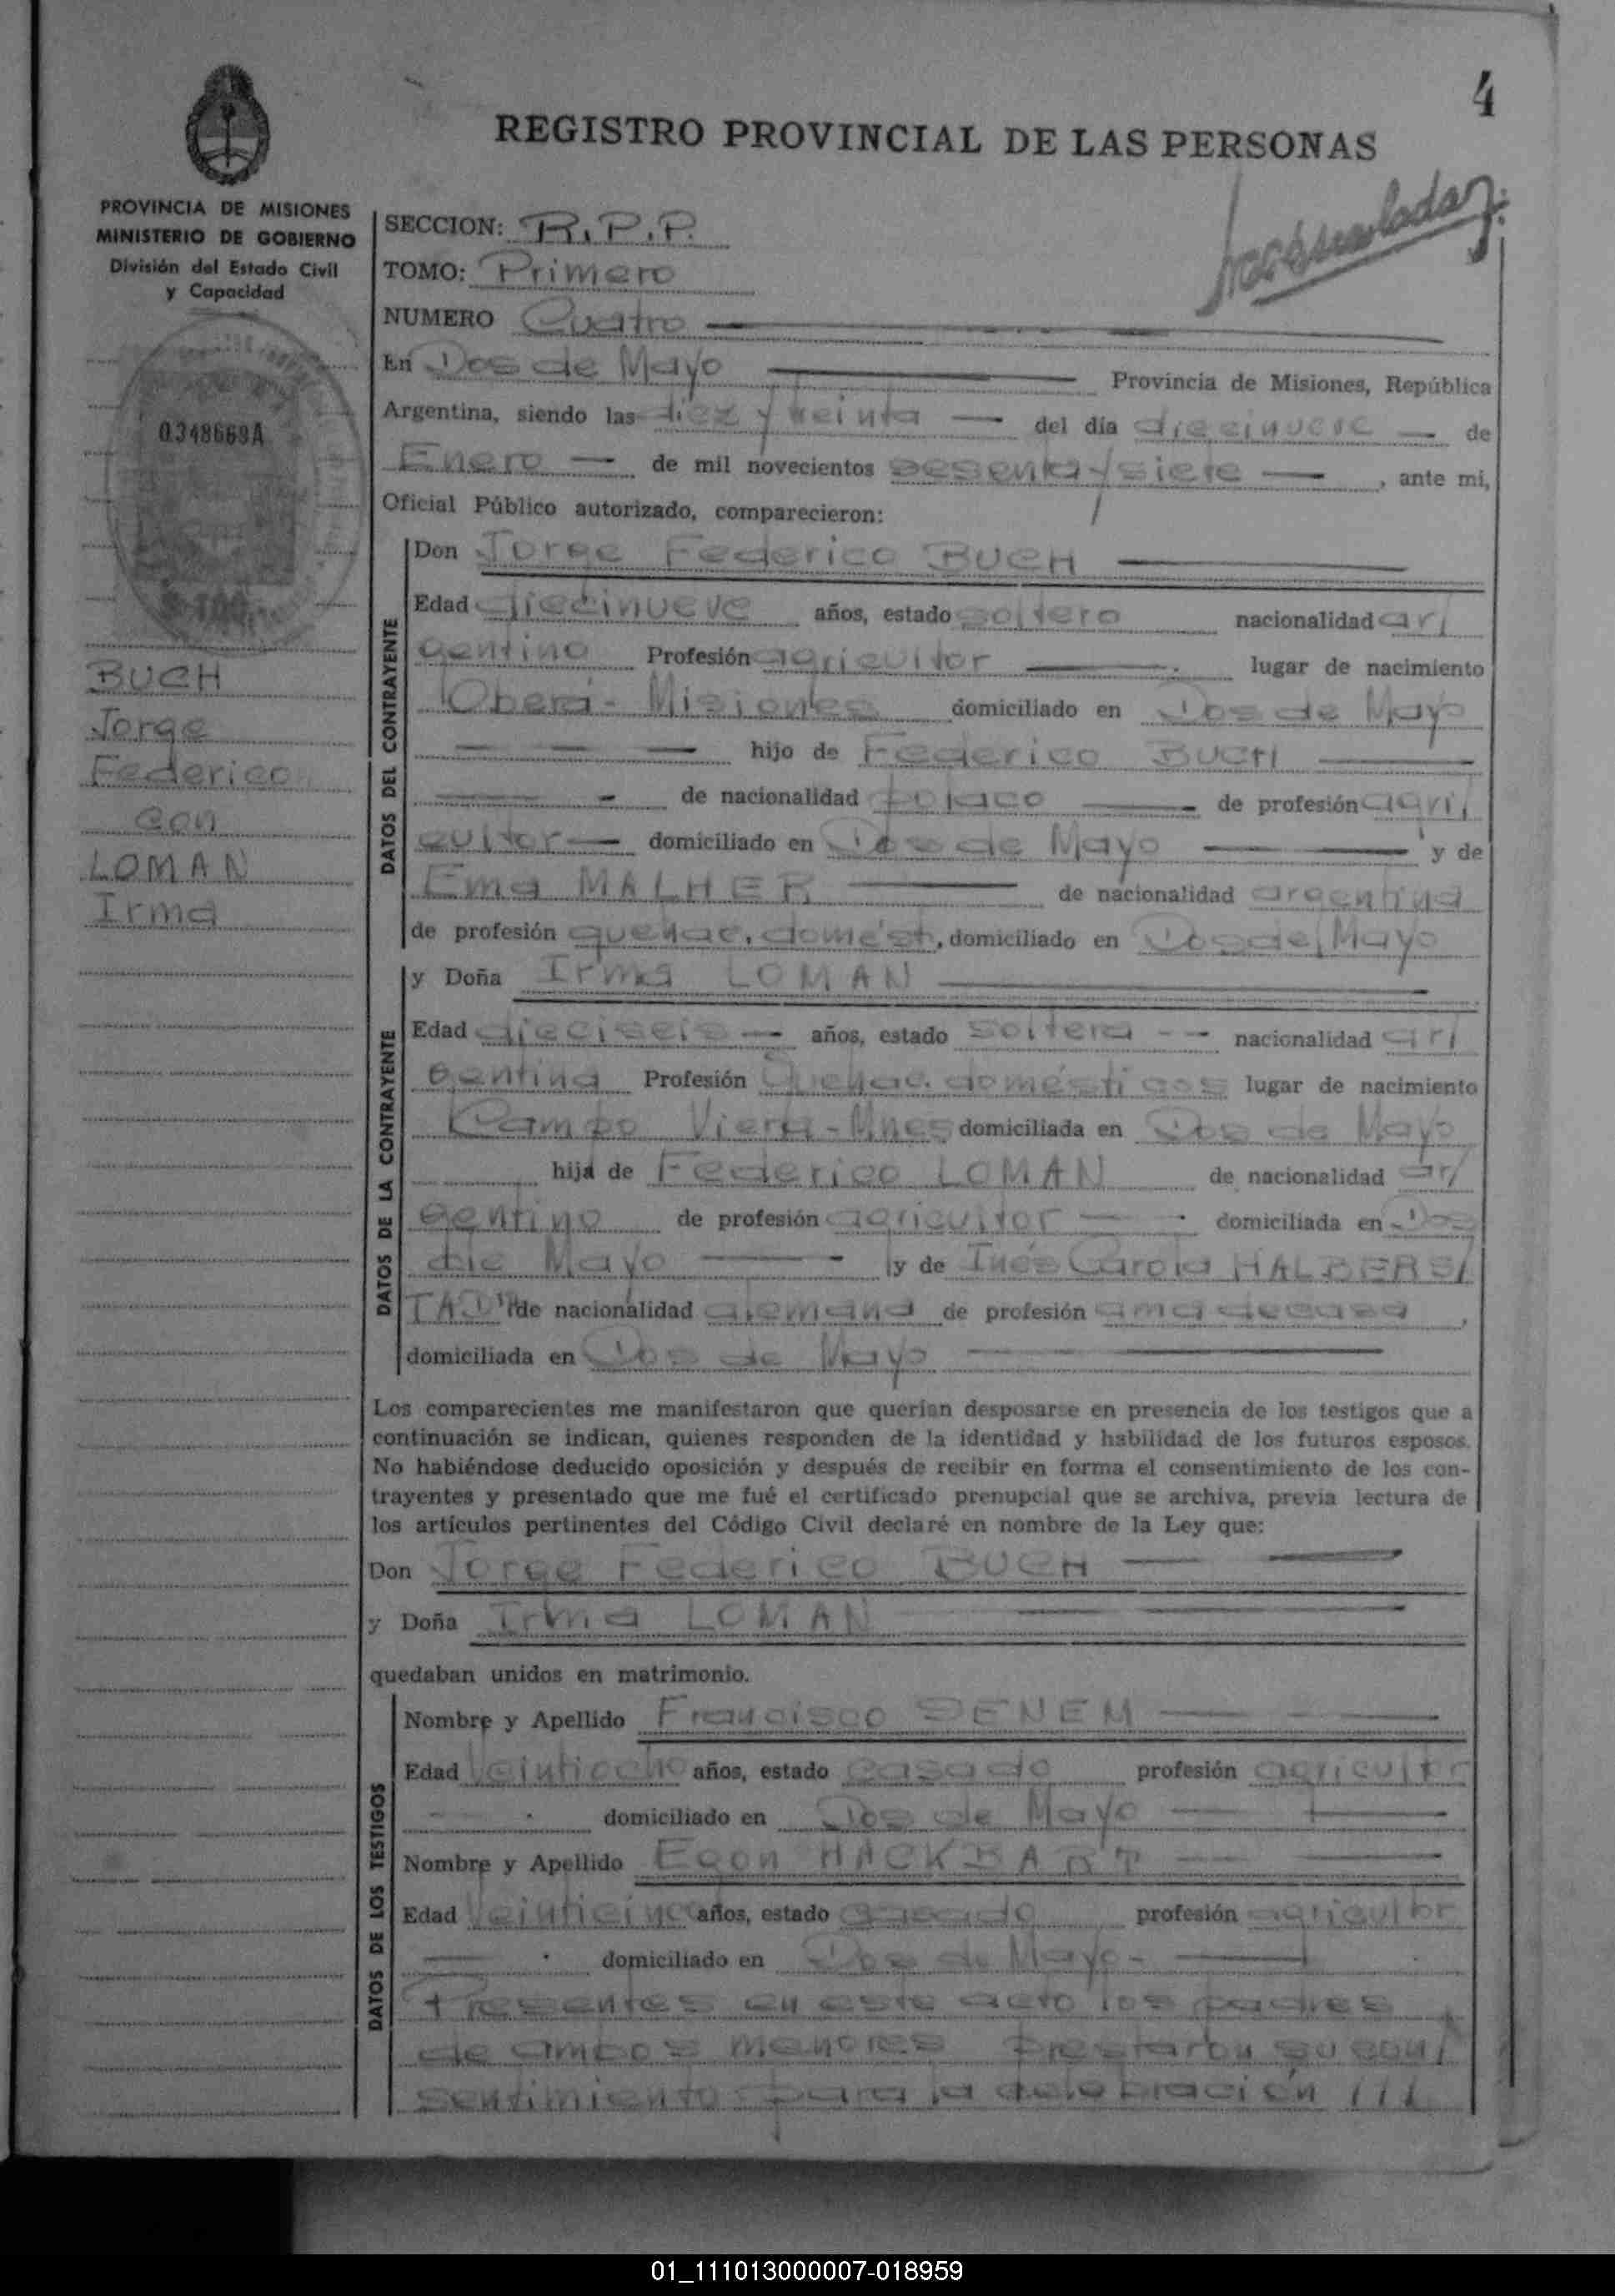 4
REGISTRO PROVINCIAL DE LAS PERSONAS
PROVINCIA DE MISIONES
MINISTERIO DE GOBIERNO
División del Estado Civil
y Capacidad
0348669A
BUCH
Jorge
Federico
con
LOMAN
Irma
SECCION: R.P.P.
TOMO: Primero
NUMERO Cuatro
En Dos de Mayo Provincia de Misiones, República
Argentina, siendo las diez y treinta del día diecinueve de
Enero de mil novecientos sesenta y siete, ante mi,
Oficial Público autorizado, comparecieron:
DATOS DEL CONTRAYENTE
Don Jorge Federico BUCH
Edad diecinueve años, estado soltero nacionalidad ar/
gentino Profesión agricultor lugar de nacimiento
Oberá - Misiones domiciliado en Dos de Mayo
hijo de Federico BUCH
de nacionalidad polaco de profesión agri/
cultor domiciliado en Dos de Mayo y de
Ema MALHER de nacionalidad argentina
de profesión quehac. domést., domiciliado en Dos de Mayo
DATOS DE LA CONTRAYENTE
y Doña Irma LOMAN
Edad dieciseis años, estado soltera nacionalidad ar/
gentina Profesión Quehac. domésticos lugar de nacimiento
Campo Viera - Mnes domiciliada en Dos de Mayo
hija de Federico LOMAN de nacionalidad ar/
gentino de profesión agricultor domiciliada en Dos
de Mayo y de Inés Carola HALBERS/
TADT de nacionalidad alemana de profesión ama de casa,
domiciliada en Dos de Mayo
Los comparecientes me manifestaron que querían desposarse en presencia de los testigos que a
continuación se indican, quienes responden de la identidad y habilidad de los futuros esposos.
No habiéndose deducido oposición y después de recibir en forma el consentimiento de los con-
trayentes y presentado que me fué el certificado prenupcial que se archiva, previa lectura de
los artículos pertinentes del Código Civil declaré en nombre de la Ley que:
Don Jorge Federico BUCH
y Doña Irma LOMAN
quedaban unidos en matrimonio.
DATOS DE LOS TESTIGOS
Nombre y Apellido Francisco SENEM
Edad Veintiocho años, estado casado profesión agricultor
domiciliado en Dos de Mayo
Nombre y Apellido Egon HACKBART
Edad Veinticinco años, estado casado profesión agricultor
domiciliado en Dos de Mayo-
Presentes en este acto los padres
de ambos menores prestaron su con/
sentimiento para la celebración ///
01_111013000007-018959